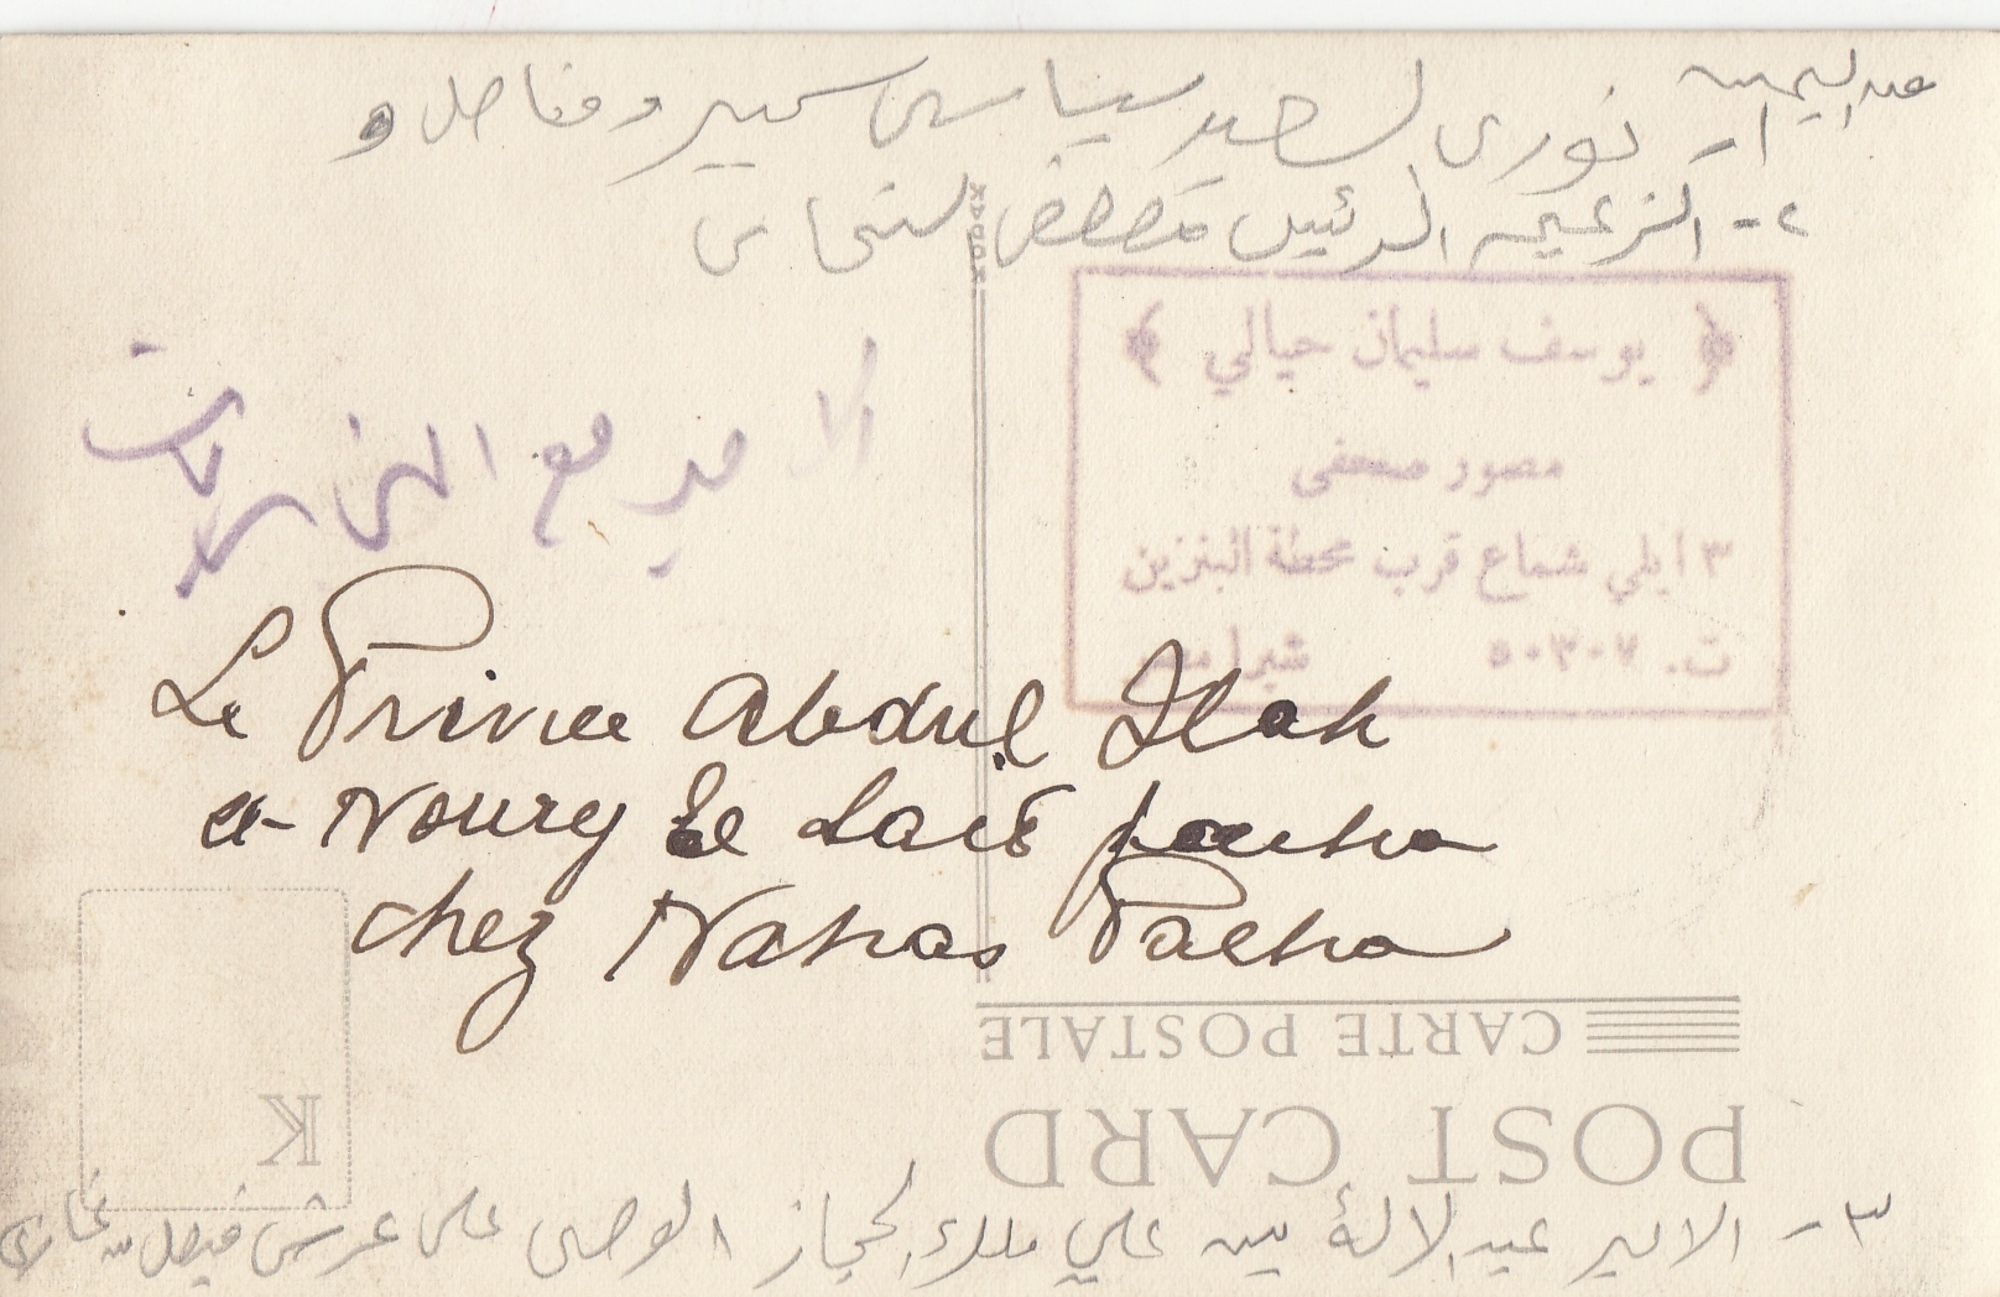 عن اليمين
١- نوري السعيد سياسي كبير ومناضل
٢- الزعيم الرئيس مصطفى النحاس
يوسف سليمان حيالي
مصور صحفي
٣ ايلي شماع قرب محطة البنزين
ت. ٥٠٣٠٧ شبرا مصر
مع
Le Prince Abdul Ilah
et Noury El Said pacha
chez Nahas Pacha
CARTE POSTALE
POST CARD
K
٣- الامير عبد الإلة بن علي ملك الحجاز الوصي على عرش فيصل بن غازي